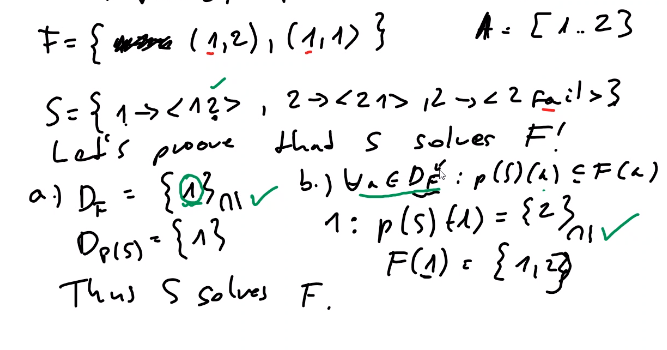 F = { (1,2), (1,1) }   A = [1..2]
S = { 1 → <12>, 2 → <21>, 2 → <2 fail> }
Let's proove that S solves F!
a.) D_F = {1} ∩| ✓   b.) ∀a ∈ D_F : p(S)(a) ⊆ F(a)
D_p(S) = {1}   1: p(S)(1) = {2} ∩| ✓
F(1) = {1,2}
Thus S solves F.